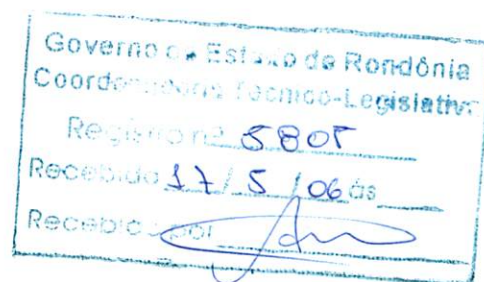 Governo do Estado de Rondônia
Coordenadoria Técnico-Legislativa
Registro nº 5805
Recebido 17/5/06 às
Recebido por